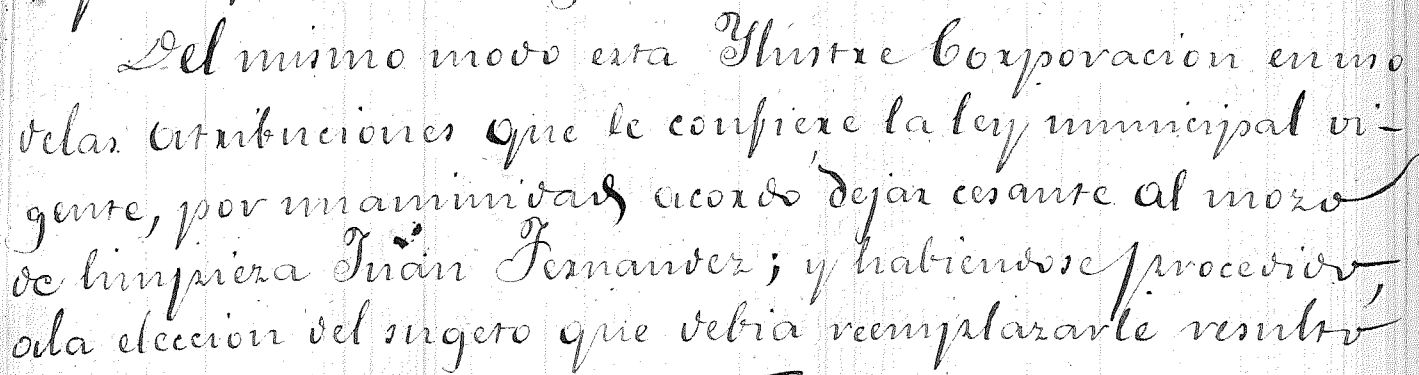 Del mismo modo esta Ylustre Corporacion en uso
delas atribuciones que le confiere la ley municipal vi-
gente, por unaminidad acordo dejar cesante al mozo
de limpieza Juan Fernandez; y habiendose procedido,
ala eleccion del sugeto que debia reemplazarle resulto